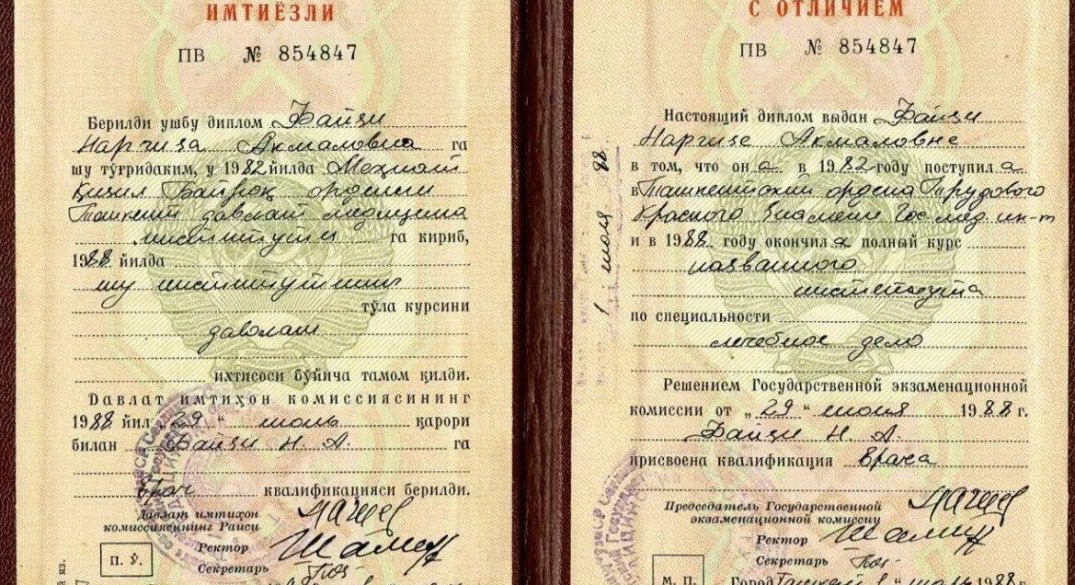 ИМТИЁЗЛИ
ПВ № 854847
Берилди ушбу диплом Файзи
Наргиза Акмаловна га
шу тўғридаким, у 1982 йилда Меҳнат
Қизил Байроқ ордени
Тошкент давлат медицина
институти га кириб,
1988 йилда
шу институтнинг
тўла курсини
даволаш
ихтисоси бўйича тамом қилди.
Давлат имтиҳон комиссиясининг
1988 йил „29“ июнь қарори
билан Файзи Н. А. га
врач квалификацияси берилди.
Давлат имтиҳон
комиссиясининг Раиси
Ректор
Секретарь
П. Ў.
С ОТЛИЧИЕМ
ПВ № 854847
Настоящий диплом выдан Файзи
Наргизе Акмаловне
в том, что она в 1982 году поступила
в Ташкентский ордена Трудового
Красного Знамени Гос. мед. ин-т
и в 1988 году окончила полный курс
названного
института
по специальности
лечебное дело
Решением Государственной экзаменационной
комиссии от „29“ июня 1988 г.
Файзи Н. А.
присвоена квалификация врача
Председатель Государственной
экзаменационной комиссии
Ректор
Секретарь
М. П. Город Ташкент 1 июль 1988
1 июля 88